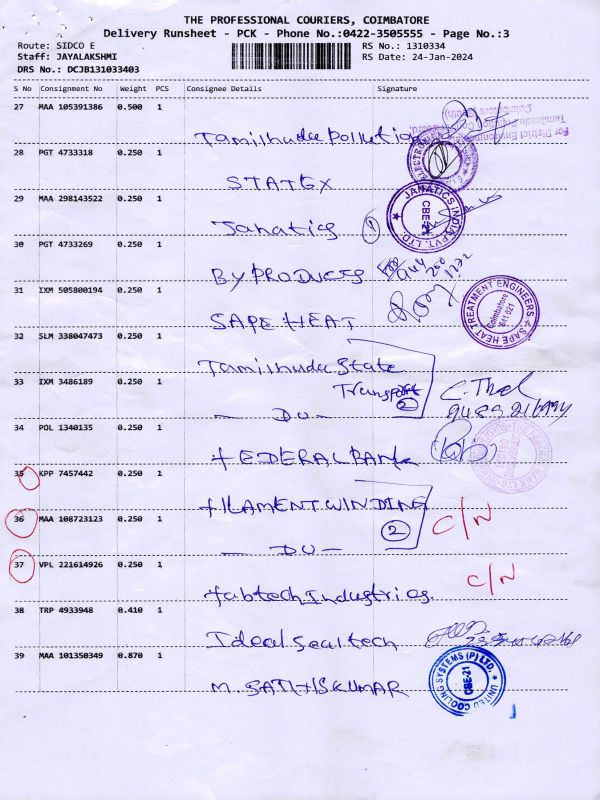 THE PROFESSIONAL COURIERS, COIMBATORE
Delivery Runsheet - PCK - Phone No.:0422-3505555 - Page No.:3
Route: SIDCO E
RS No.: 1310334
Staff: JAYALAKSHMI
RS Date: 24-Jan-2024
DRS No.: DCJB131033403
S No Consignment No Weight PCS Consignee Details Signature
27 MAA 105391386 0.500 1
Tamilnadu Pollution
For District Environmental
28 PGT 4733318 0.250 1
STATEX
29 MAA 298143522 0.250 1
Janatics 1
JANATICS INDIA PVT. LTD. ★ CBE-21
30 PGT 4733269 0.250 1
BY PRODUCTS
31 IXM 505800194 0.250 1
SAPE HEAT
SAPE HEAT TREATMENT ENGINEERS ★ Coimbatore 641 021
32 SLM 338047473 0.250 1
Tamilnadu State
Transport
2
33 IXM 3486189 0.250 1
— DO —
34 POL 1340135 0.250 1
FEDERAL BANK
35 KPP 7457442 0.250 1
FILAMENT WINDING
2
C/N
36 MAA 108723123 0.250 1
— DO —
37 VPL 221614926 0.250 1
C/N
fabtech Industries.
38 TRP 4933948 0.410 1
Ideal Sealtech
39 MAA 101350349 0.870 1
M. SATHISKUMAR
UNITED COOLING SYSTEMS (P) LTD. ★ CBE-21